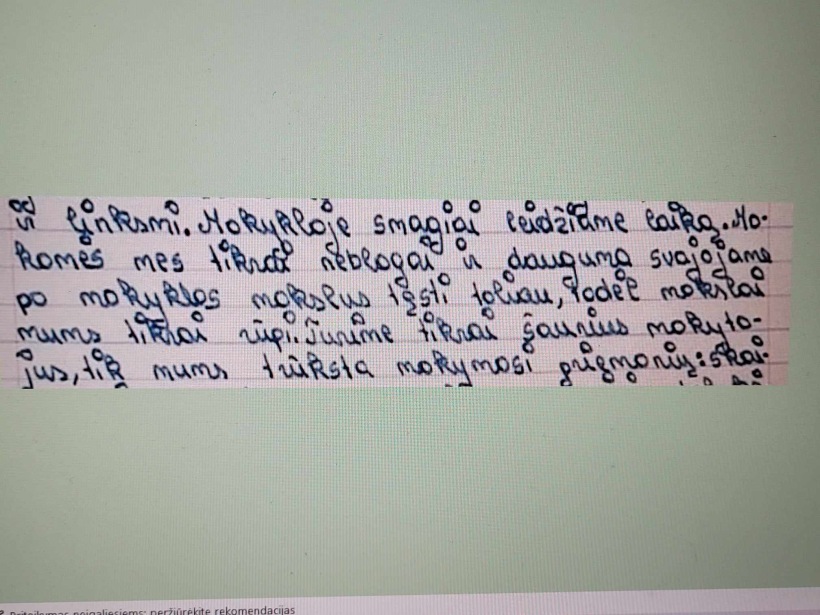 ir linksmi. Mokykloje smagiai leidžiame laiką. Mo-
komės mes tikrai neblogai ir dauguma svajojame
po mokyklos mokslus tęsti toliau, todėl mokslai
mums tikrai rūpi. Turime tikrai šaunius mokyto-
jus, tik mums trūksta mokymosi priemonių: skai-
Pritaikymas neįgaliesiems: peržiūrėkite rekomendacijas